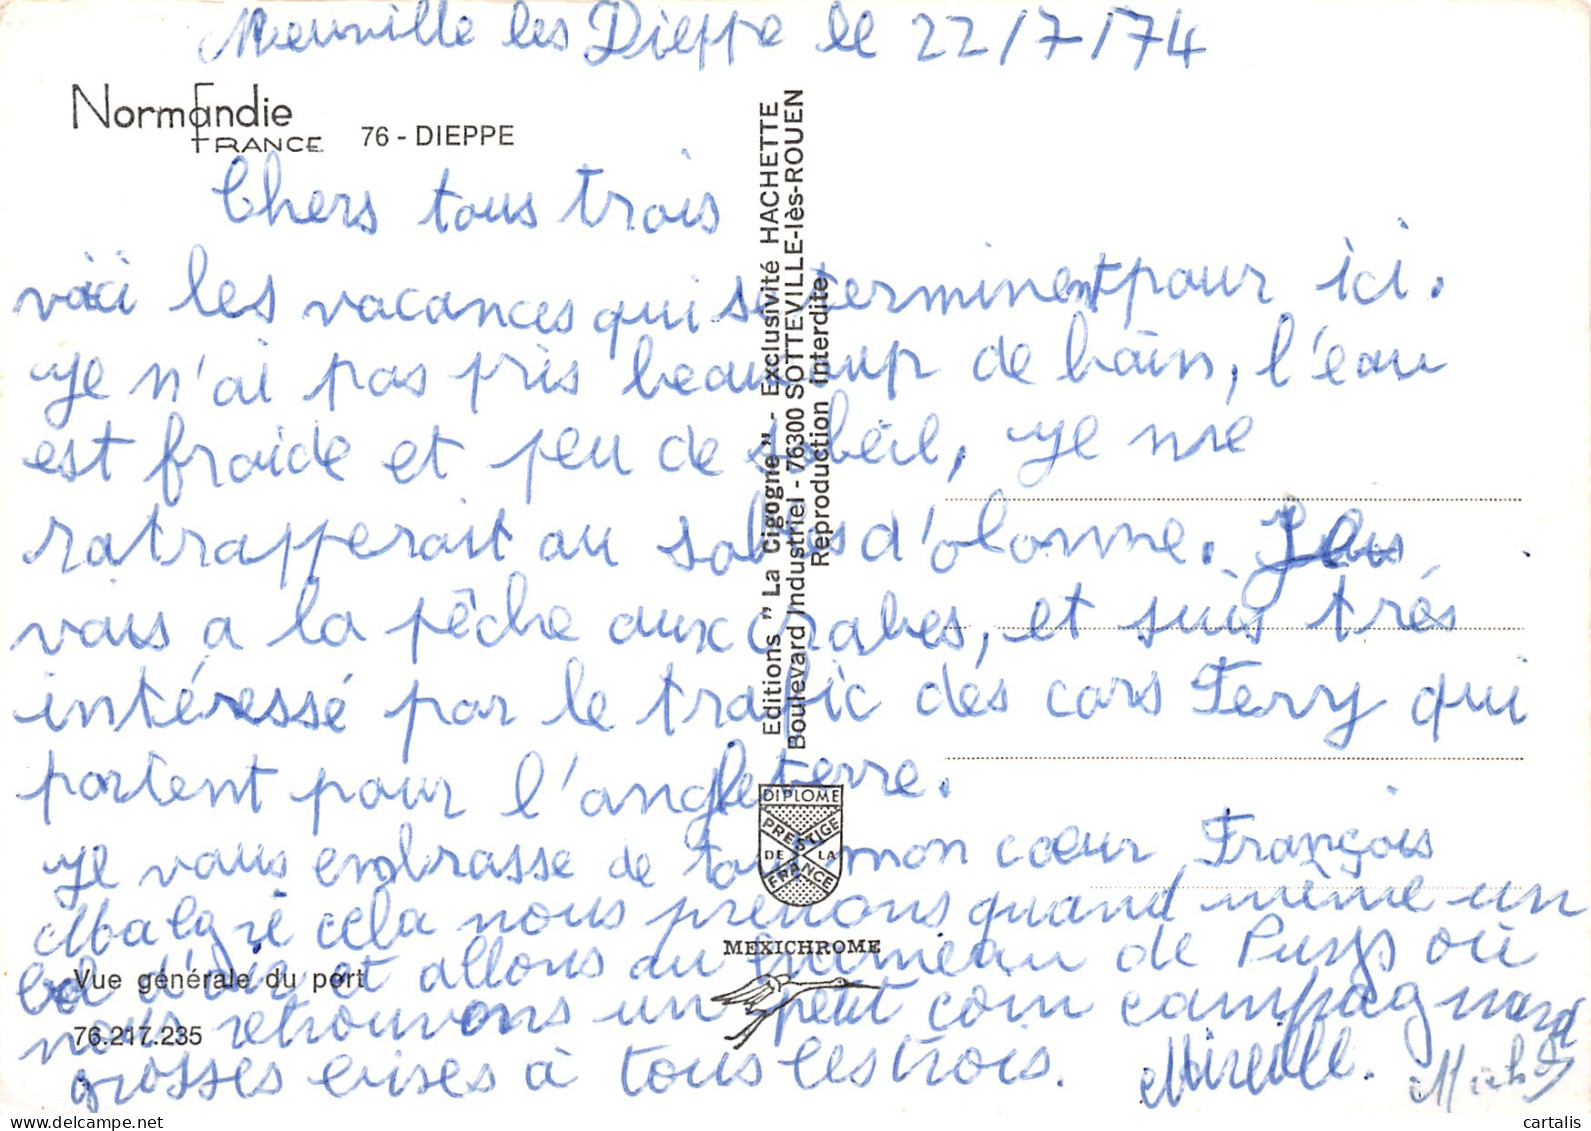 Neuville les Dieppe le 22/7/74
Normandie
FRANCE 76 - DIEPPE
Chers tous trois
voici les vacances qui se terminent pour ici.
Je n'ai pas pris beaucoup de bain, l'eau
est froide et peu de soleil, Je me
ratrapperait au sables d'olonne. Je
vais a la pêche aux crabes, et suis très
intéressé par le trafic des cars Ferry qui
partent pour l'angleterre.
Je vous embrasse de tout mon cœur François
Malgré cela nous prenons quand même un
bol d'air et allons au hameau de Puys où
nous retrouvons un petit coin campagnard
grosses bises à tous les trois. Mireille.
Editions "La Cigogne" - Exclusivité HACHETTE
Boulevard Industriel - 76300 SOTTEVILLE-lès-ROUEN
Reproduction interdite
DIPLOME
PRESTIGE
DE LA
FRANCE
MEXICHROME
Vue générale du port
76.217.235
cartalis